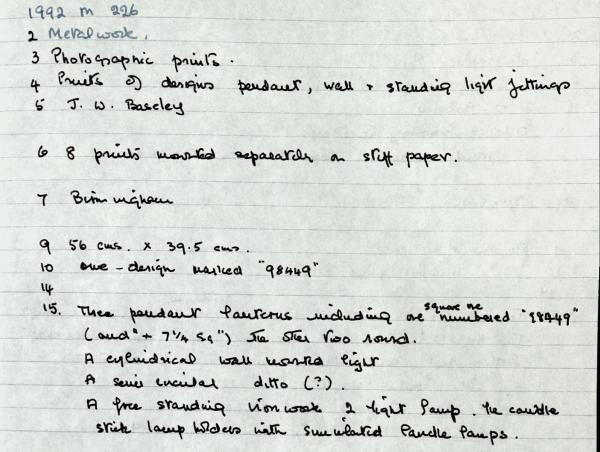 1992 M 226
2 Metalwork.
3 Photographic prints.
4 Prints of designs pendant, wall + standing light fittings
5 J. W. Baseley
6 8 prints mounted separately on stiff paper.
7 Birmingham
9 56 cms. x 39.5 cms.
10 one - design marked "98449"
14
15. Three pendant lanterns including one square one numbered "98449"
( and " + 7 1/4 sq") the other two round.
A cylindrical wall mounted light
A semi circular ditto (?).
A free standing ironwork 2 light lamp. the candle
stick lamp holders with simulated candle lamps.